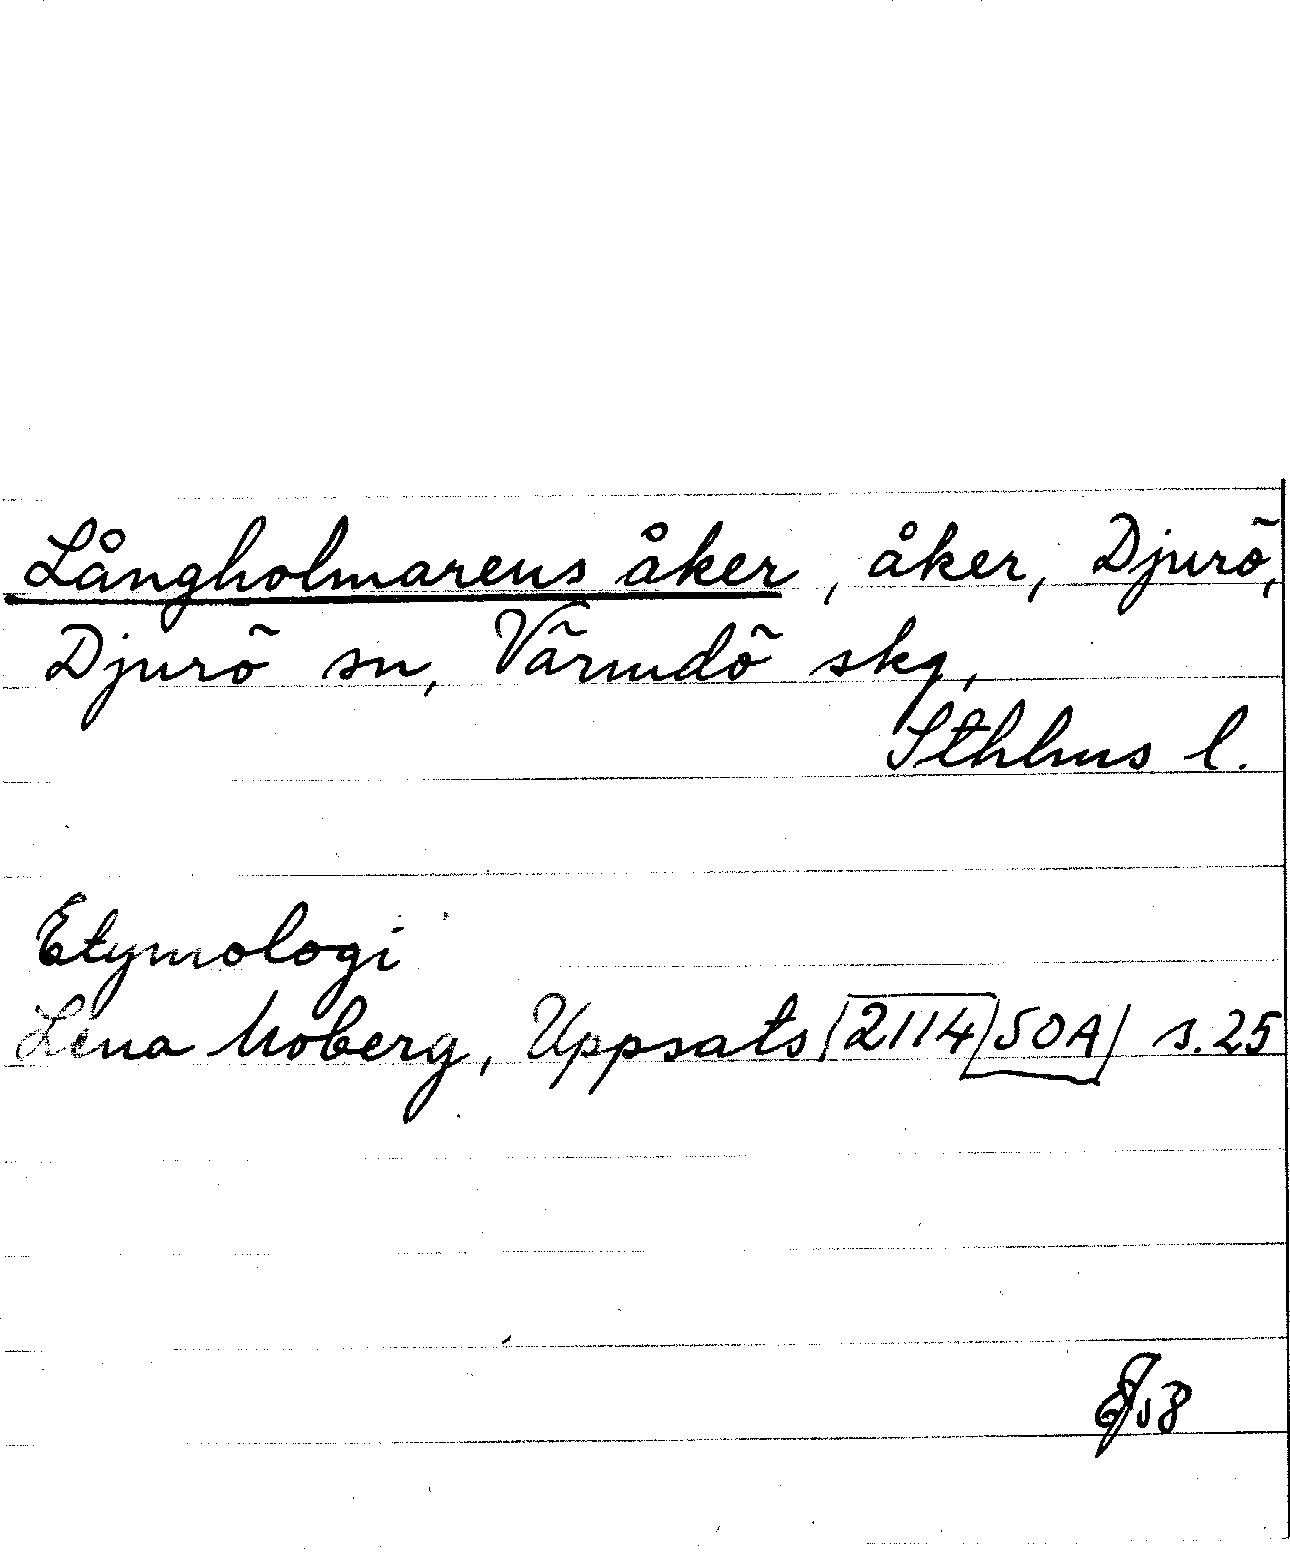 Långholmarens åker, åker, Djurö,
Djurö sn, Värmdö skg,
Sthlms l.
Etymologi
Lena Moberg, Uppsats 2114 50A s. 25